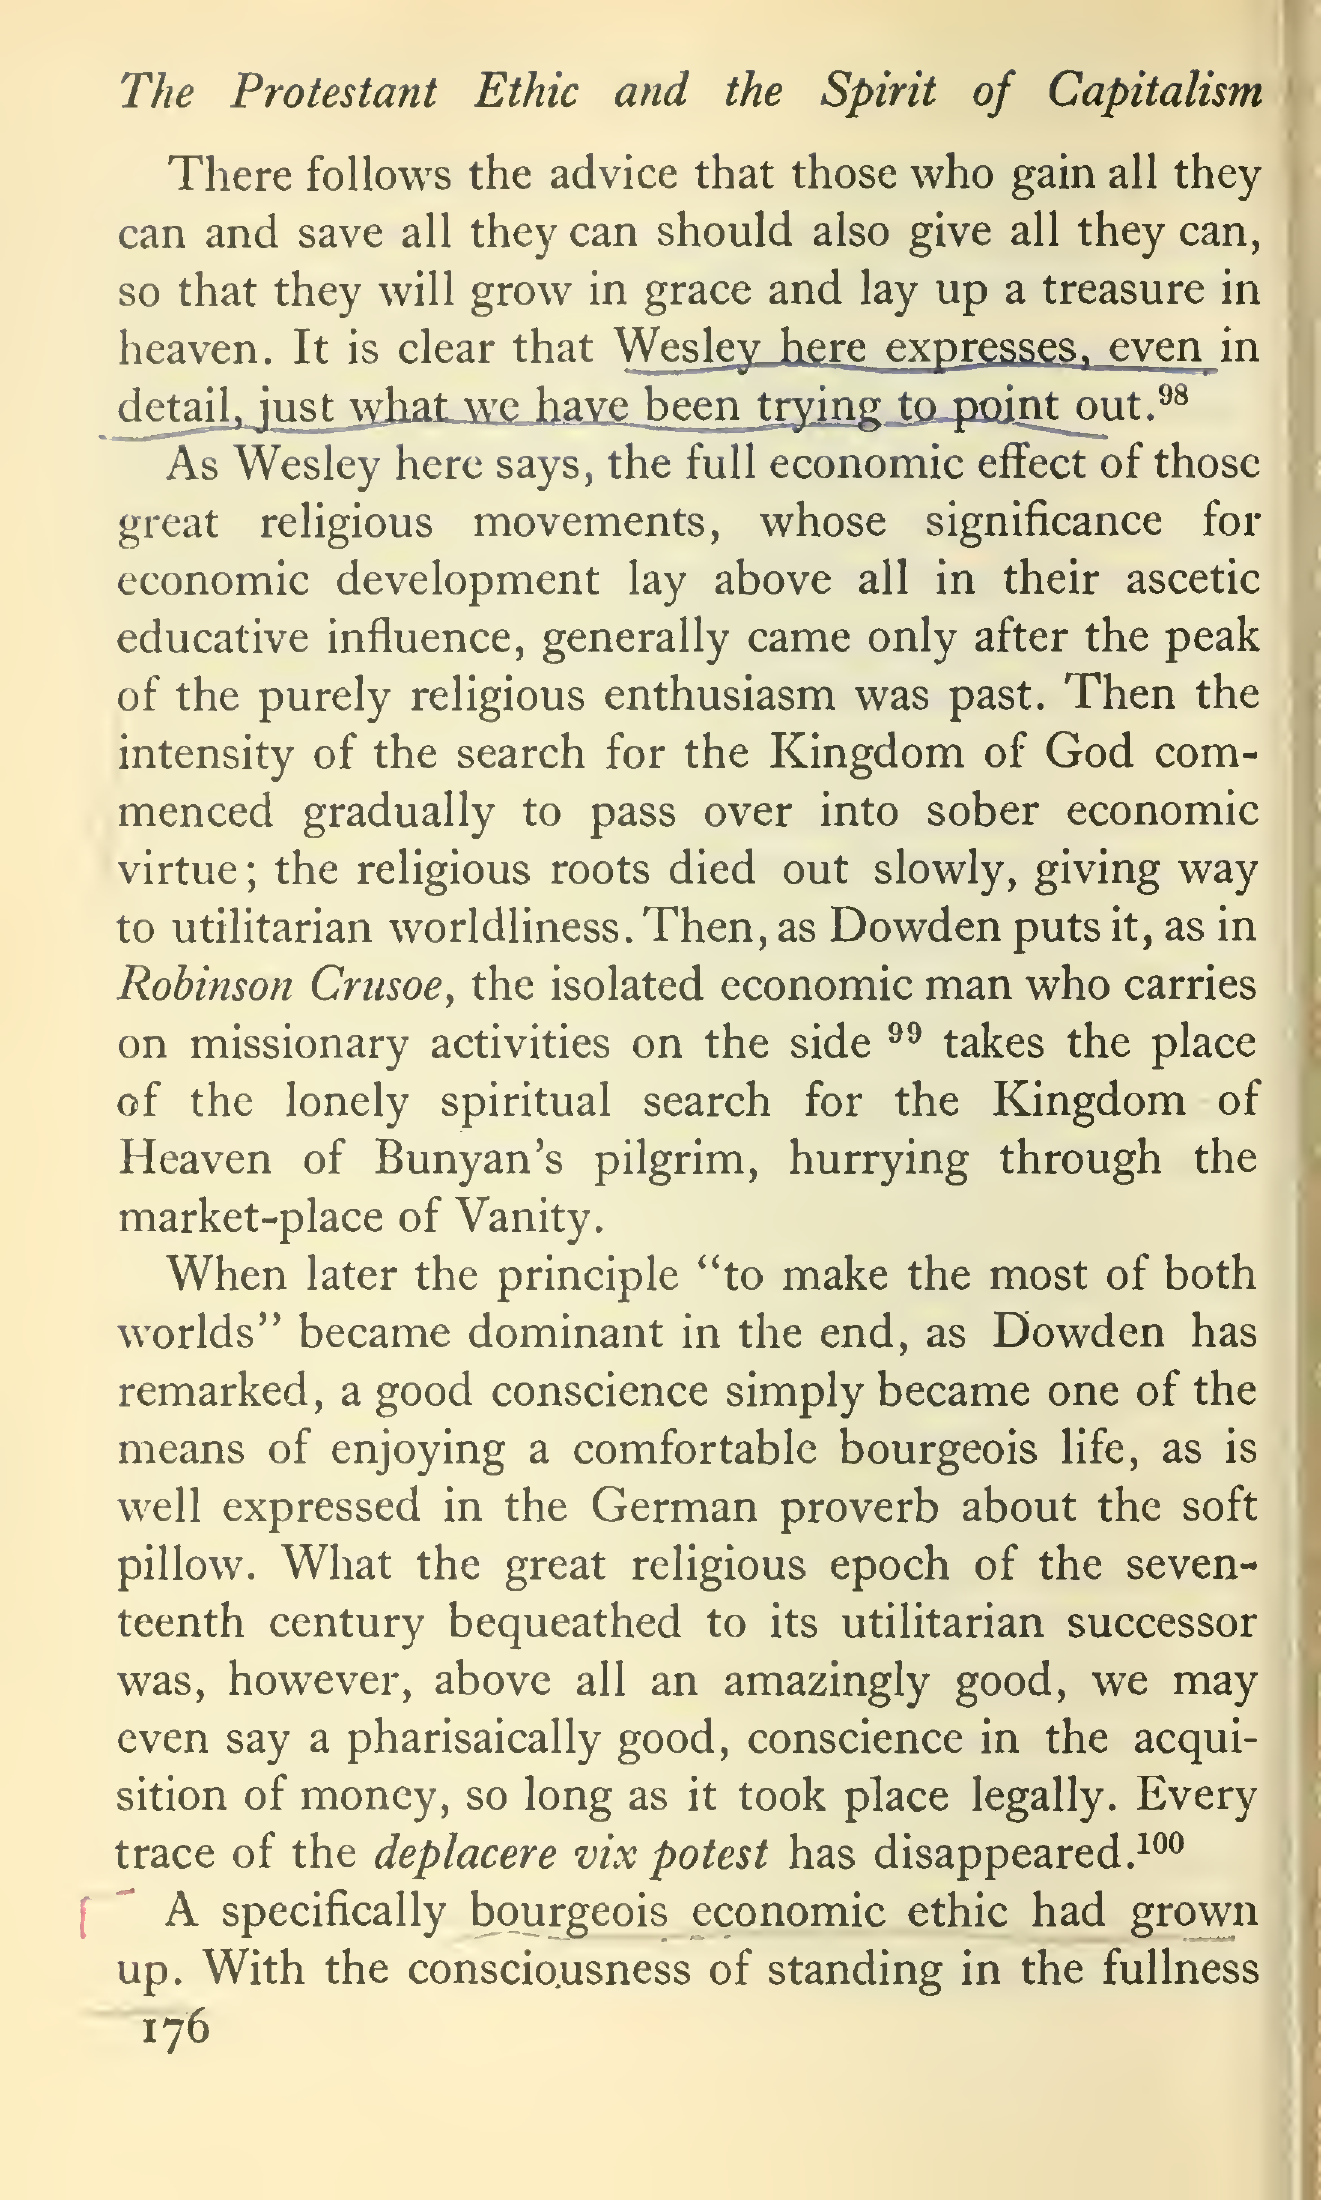 The Protestant Ethic and the Spirit of Capitalism
There follows the advice that those who gain all they
can and save all they can should also give all they can,
so that they will grow in grace and lay up a treasure in
heaven. It is clear that Wesley here expresses, even in
detail, just what we have been trying to point out.⁹⁸
As Wesley here says, the full economic effect of those
great religious movements, whose significance for
economic development lay above all in their ascetic
educative influence, generally came only after the peak
of the purely religious enthusiasm was past. Then the
intensity of the search for the Kingdom of God com-
menced gradually to pass over into sober economic
virtue; the religious roots died out slowly, giving way
to utilitarian worldliness. Then, as Dowden puts it, as in
Robinson Crusoe, the isolated economic man who carries
on missionary activities on the side ⁹⁹ takes the place
of the lonely spiritual search for the Kingdom of
Heaven of Bunyan's pilgrim, hurrying through the
market-place of Vanity.
When later the principle "to make the most of both
worlds" became dominant in the end, as Dowden has
remarked, a good conscience simply became one of the
means of enjoying a comfortable bourgeois life, as is
well expressed in the German proverb about the soft
pillow. What the great religious epoch of the seven-
teenth century bequeathed to its utilitarian successor
was, however, above all an amazingly good, we may
even say a pharisaically good, conscience in the acqui-
sition of money, so long as it took place legally. Every
trace of the deplacere vix potest has disappeared.¹⁰⁰
A specifically bourgeois economic ethic had grown
up. With the consciousness of standing in the fullness
176